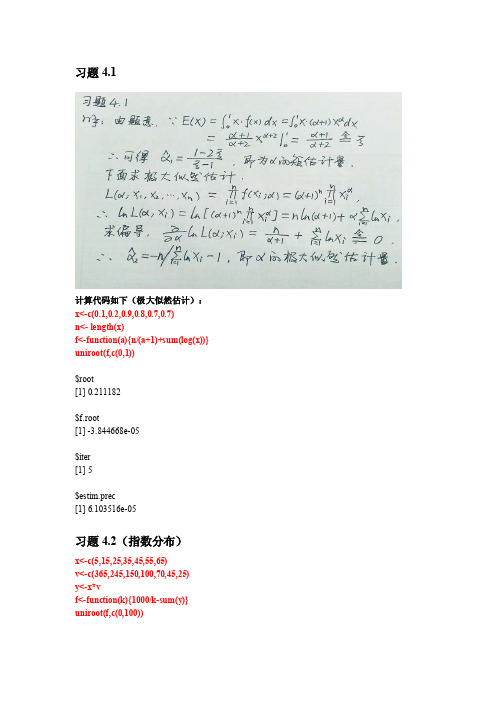 习题 4.1
习题4.1
解：由题意，∵ E(X) = ∫₀¹ x·f(x) dx = ∫₀¹ x·(α+1)x^α dx
= (α+1)/(α+2) x^(α+2) |₀¹ = (α+1)/(α+2) ≜ ξ
∴ 可得 α̂₁ = (1-2ξ)/(ξ-1)，即为α的矩估计量.
下面求极大似然估计.
L(α; x₁, x₂, …, xₙ) = ∏ᵢ₌₁ⁿ f(xᵢ; α) = (α+1)ⁿ ∏ᵢ₌₁ⁿ xᵢ^α,
∴ ln L(α; xᵢ) = ln[(α+1)ⁿ ∏ᵢ₌₁ⁿ xᵢ^α] = n ln(α+1) + α Σᵢ₌₁ⁿ ln xᵢ,
求偏导, ∂/∂α ln L(α; xᵢ) = n/(α+1) + Σᵢ₌₁ⁿ ln xᵢ ≜ 0.
∴ α̂₂ = -n/Σᵢ₌₁ⁿ ln xᵢ - 1, 即α的极大似然估计量.
计算代码如下（极大似然估计）:
x<-c(0.1,0.2,0.9,0.8,0.7,0.7)
n<- length(x)
f<-function(a){n/(a+1)+sum(log(x))}
uniroot(f,c(0,1))
$root
[1] 0.211182
$f.root
[1] -3.844668e-05
$iter
[1] 5
$estim.prec
[1] 6.103516e-05
习题 4.2（指数分布）
x<-c(5,15,25,35,45,55,65)
v<-c(365,245,150,100,70,45,25)
y<-x*v
f<-function(k){1000/k-sum(y)}
uniroot(f,c(0,100))